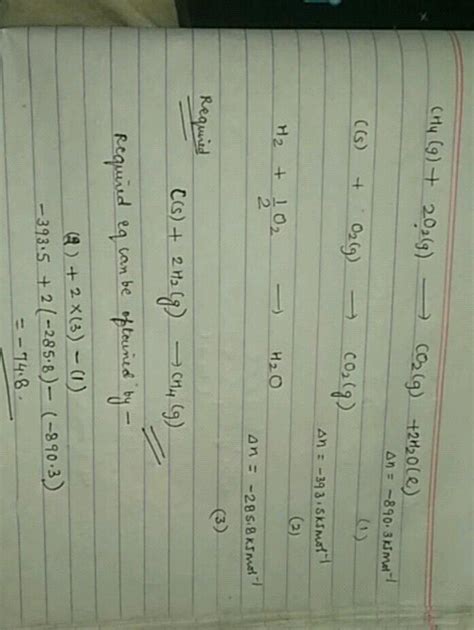 CH4(g) + 2O2(g) → CO2(g) + 2H2O(l)
Δn = -890.3 kJ mol⁻¹
(1)
C(s) + O2(g) → CO2(g)
Δn = -393.5 kJ mol⁻¹
(2)
H2 + 1/2 O2 → H2O
Δn = -285.8 kJ mol⁻¹
(3)
Required
C(s) + 2H2(g) → CH4(g)
Required eq can be obtained by -
(2) + 2×(3) - (1)
-393.5 + 2(-285.8) - (-890.3)
= -74.8.